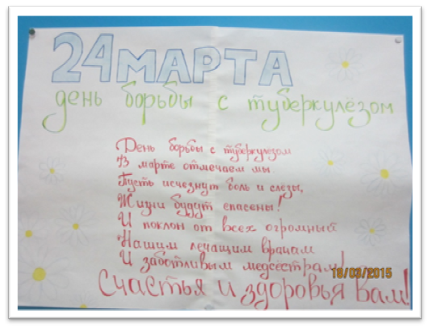 24 МАРТА
день борьбы с туберкулёзом
День борьбы с туберкулёзом
В марте отмечаем мы
Пусть исчезнут боль и слёзы,
Жизни будут спасены!
И поклон от всех огромный
Нашим лечащим врачам
И заботливым медсестрам!
Счастья и здоровья Вам!
19/03/2015